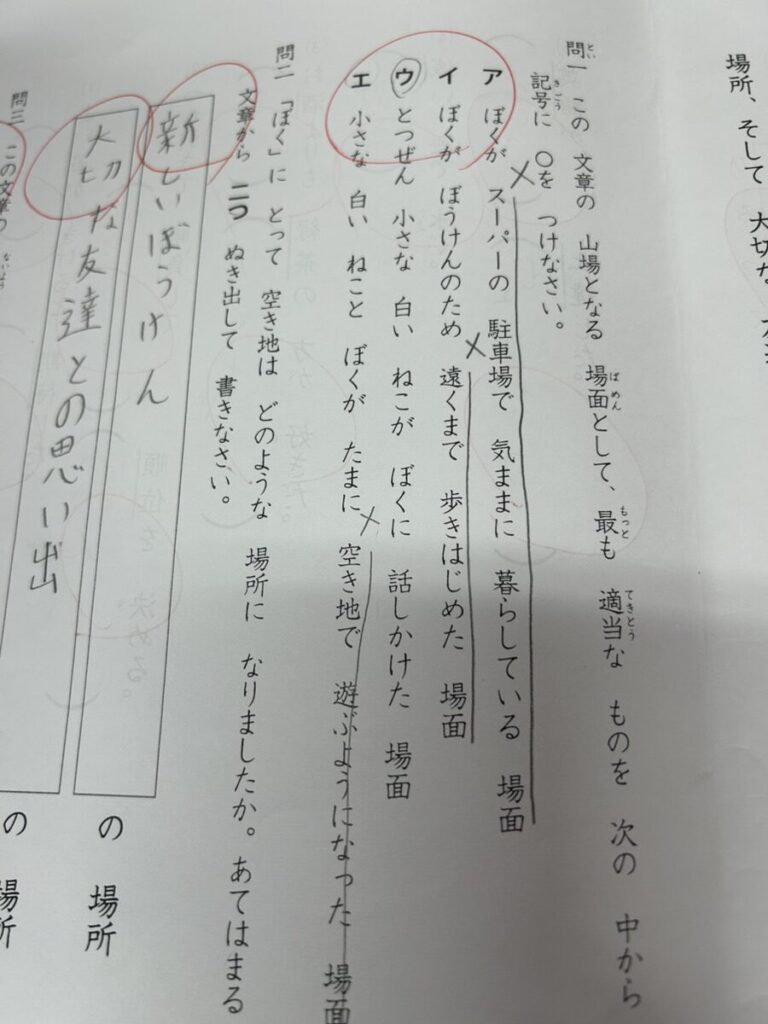 場所、そして 大切な
問一 この 文章の 山場となる 場面として、最も 適当な ものを 次の 中から
記号に ○を つけなさい。
ア ぼくが スーパーの 駐車場で 気ままに 暮らしている 場面
イ ぼくが ぼうけんのため 遠くまで 歩きはじめた 場面
ウ とつぜん 小さな 白い ねこが ぼくに 話しかけた 場面
エ 小さな 白い ねこと ぼくが たまに 空き地で 遊ぶようになった 場面
問二 「ぼく」に とって 空き地は どのような 場所に なりましたか。あてはまる
文章から 二つ ぬき出して 書きなさい。
新しいぼうけん の 場所
大切な友達との思い出 の 場所
問三 この文章の